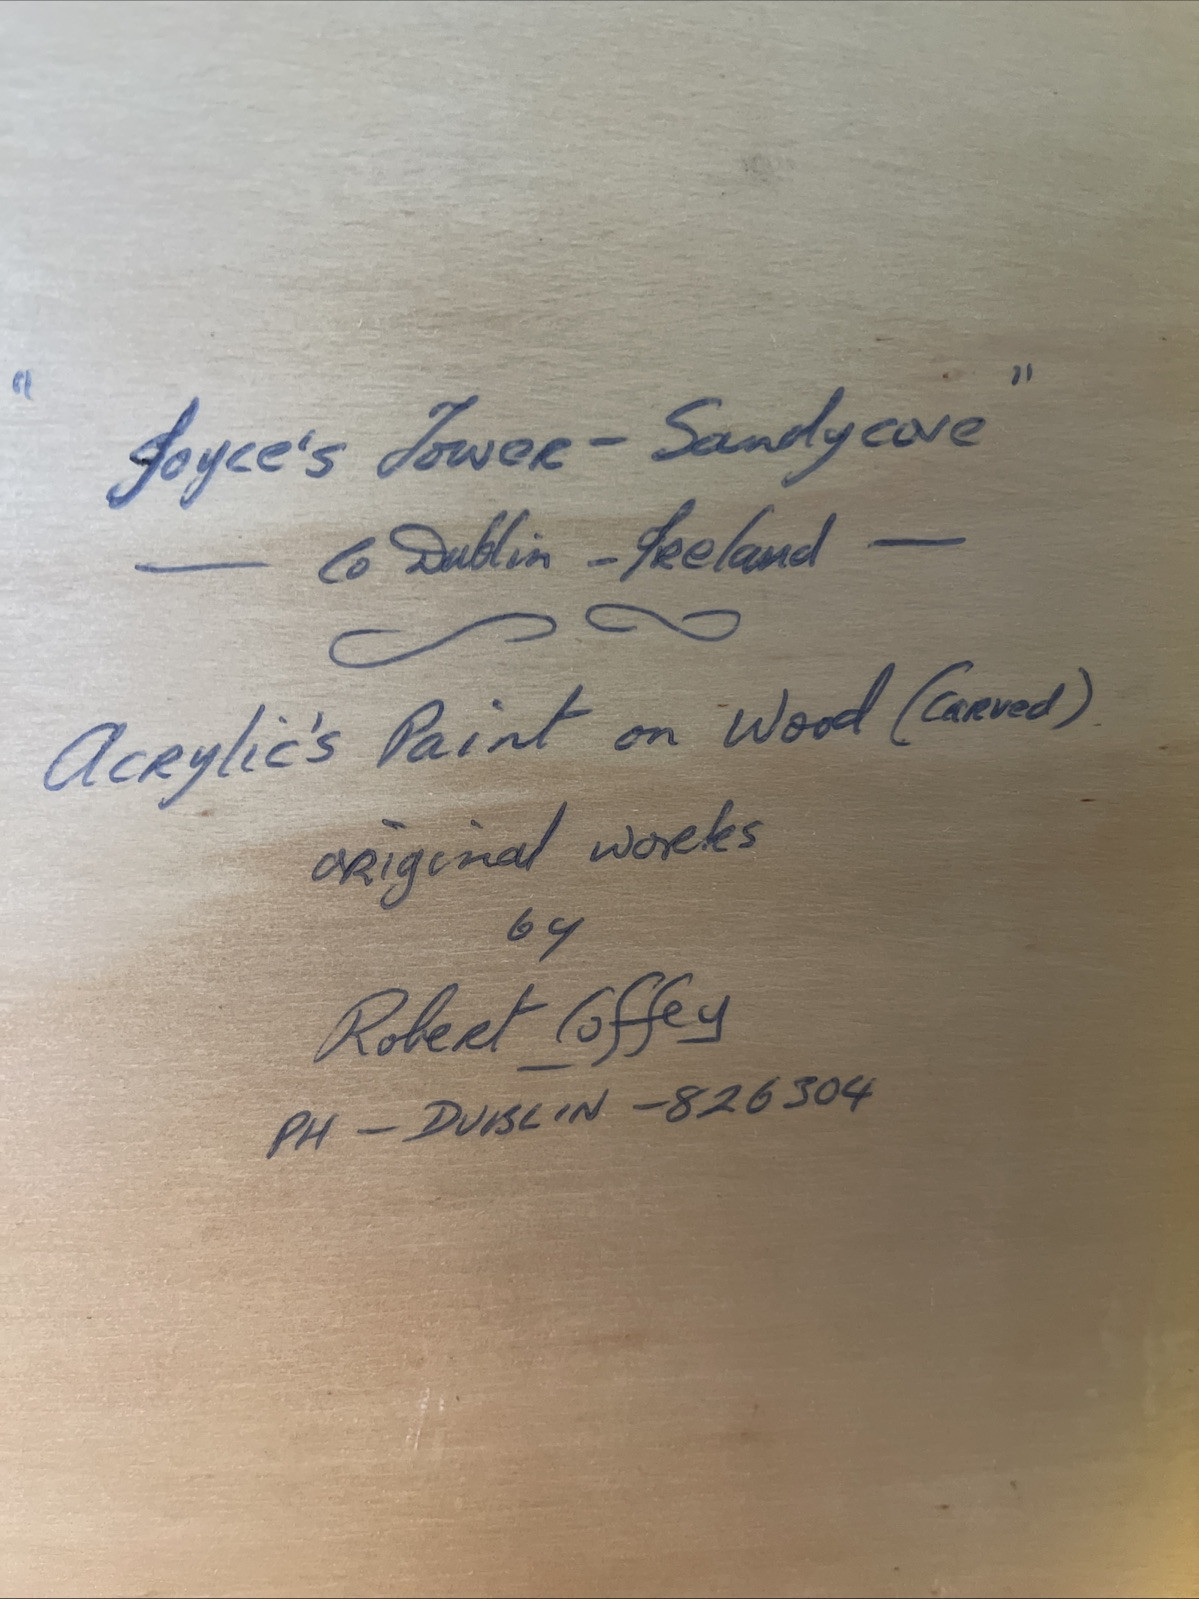 "Joyce's Tower - Sandycove"
— Co Dublin - Ireland —
Acrylic's Paint on Wood (Carved)
original works
by
Robert Coffey
PH - DUBLIN - 826304